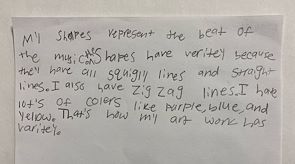 My shapes represent the beat of
the music. The shapes have veritey because
they have all squigly lines and straight
lines. I also have zig zag lines. I have
lot's of colors like purple, blue, and
yellow. That's how my art work has
varitey.